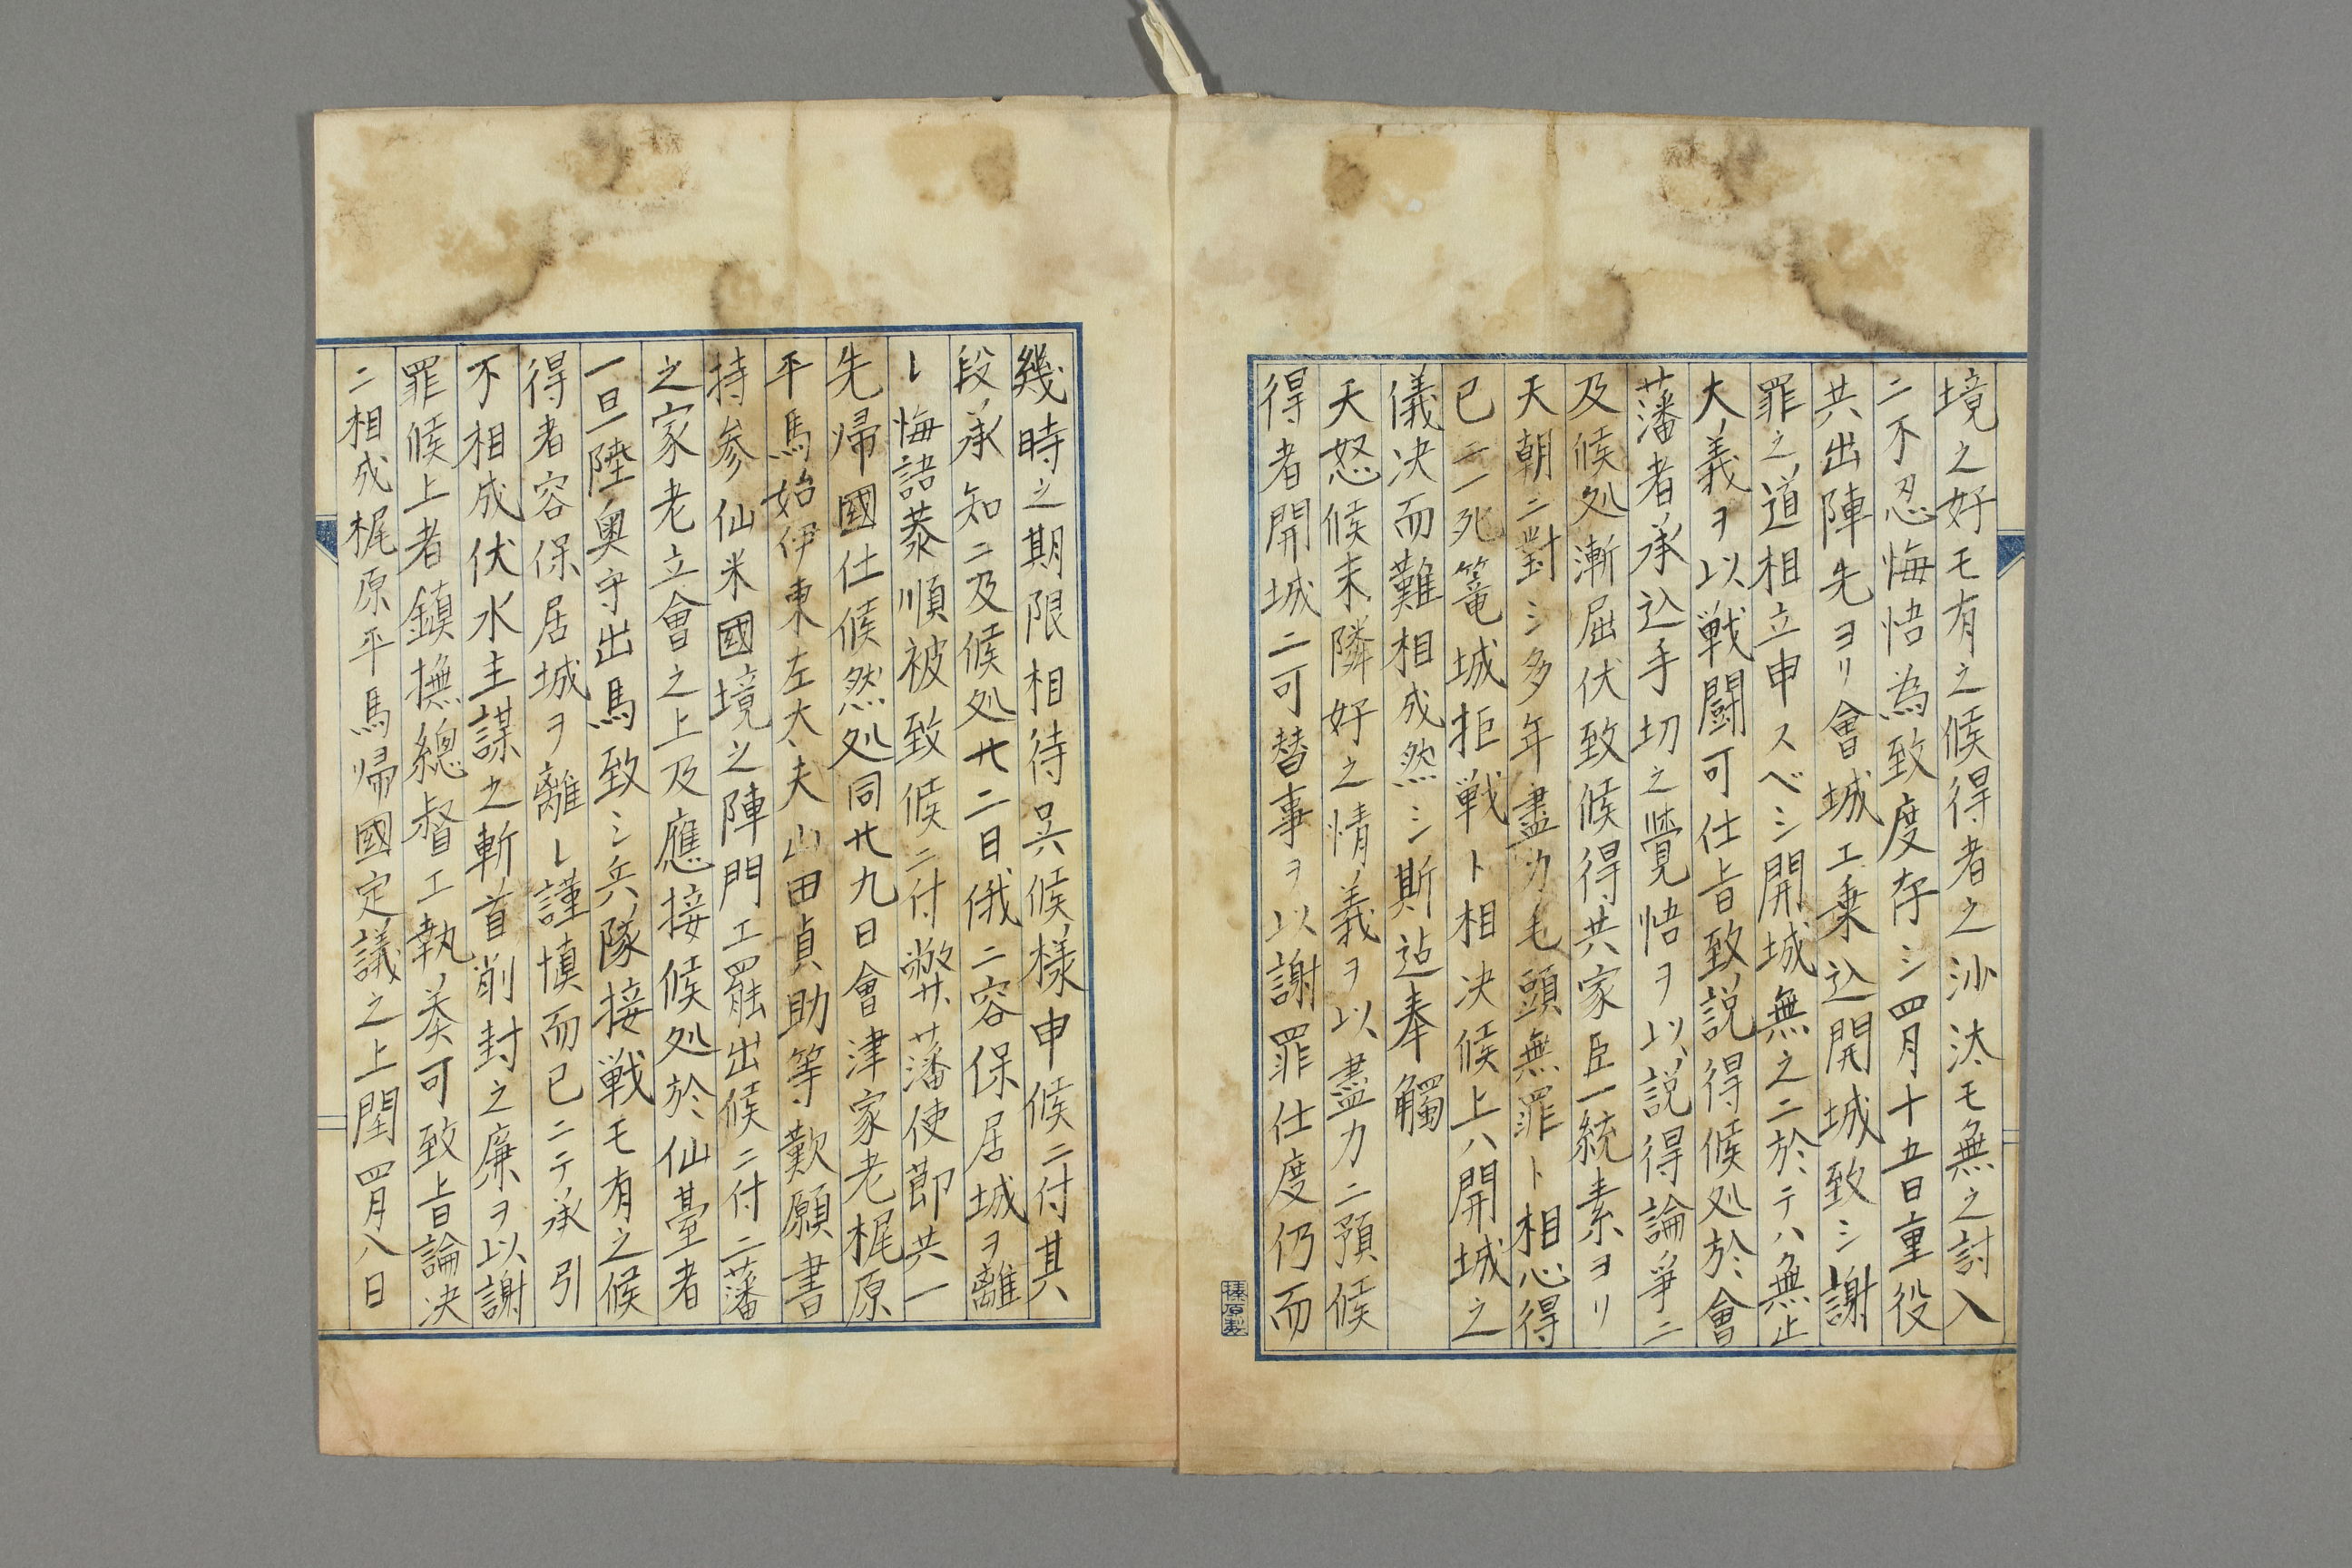 境之好モ有之候得者之沙汰モ無之討入
ニ不忍悔悟為致度存シ四月十五日重役
共出陣先ヨリ會城エ乗込開城致シ謝
罪之道相立申スベシ開城無之ニ於テハ無止
大義ヲ以戦闘可仕旨致説得候処於會
藩者承込手切之覺悟ヲ以説得論爭ニ
及候処漸屈伏致候得共家臣一統素ヨリ
天朝ニ對シ多年盡力毛頭無罪ト相心得
已ニ一死篭城拒戦ト相决候上ハ開城之
儀决而難相成然シ斯迠奉觸
天怒候末隣好之情義ヲ以盡力ニ預候
得者開城ニ可替事ヲ以謝罪仕度仍而
榛原製
幾時之期限相待呉候様申候ニ付其
段承知ニ及候処廿二日俄ニ容保居城ヲ離
レ悔誥恭順被致候ニ付弊藩使節共一
先帰國仕候然処同廿九日會津家老梶原
平馬始伊東左太夫山田貞助等歎願書
持参仙米國境之陣門エ罷出候ニ付二藩
之家老立會之上及應接候処於仙臺者
一旦陸奥守出馬致シ兵隊接戦モ有之候
得者容保居城ヲ離レ謹慎而已ニテ承引
不相成伏水主謀之斬首削封之廉ヲ以謝
罪候上者鎮撫總督エ執奏可致旨論决
ニ相成梶原平馬帰國定議之上閏四月八日